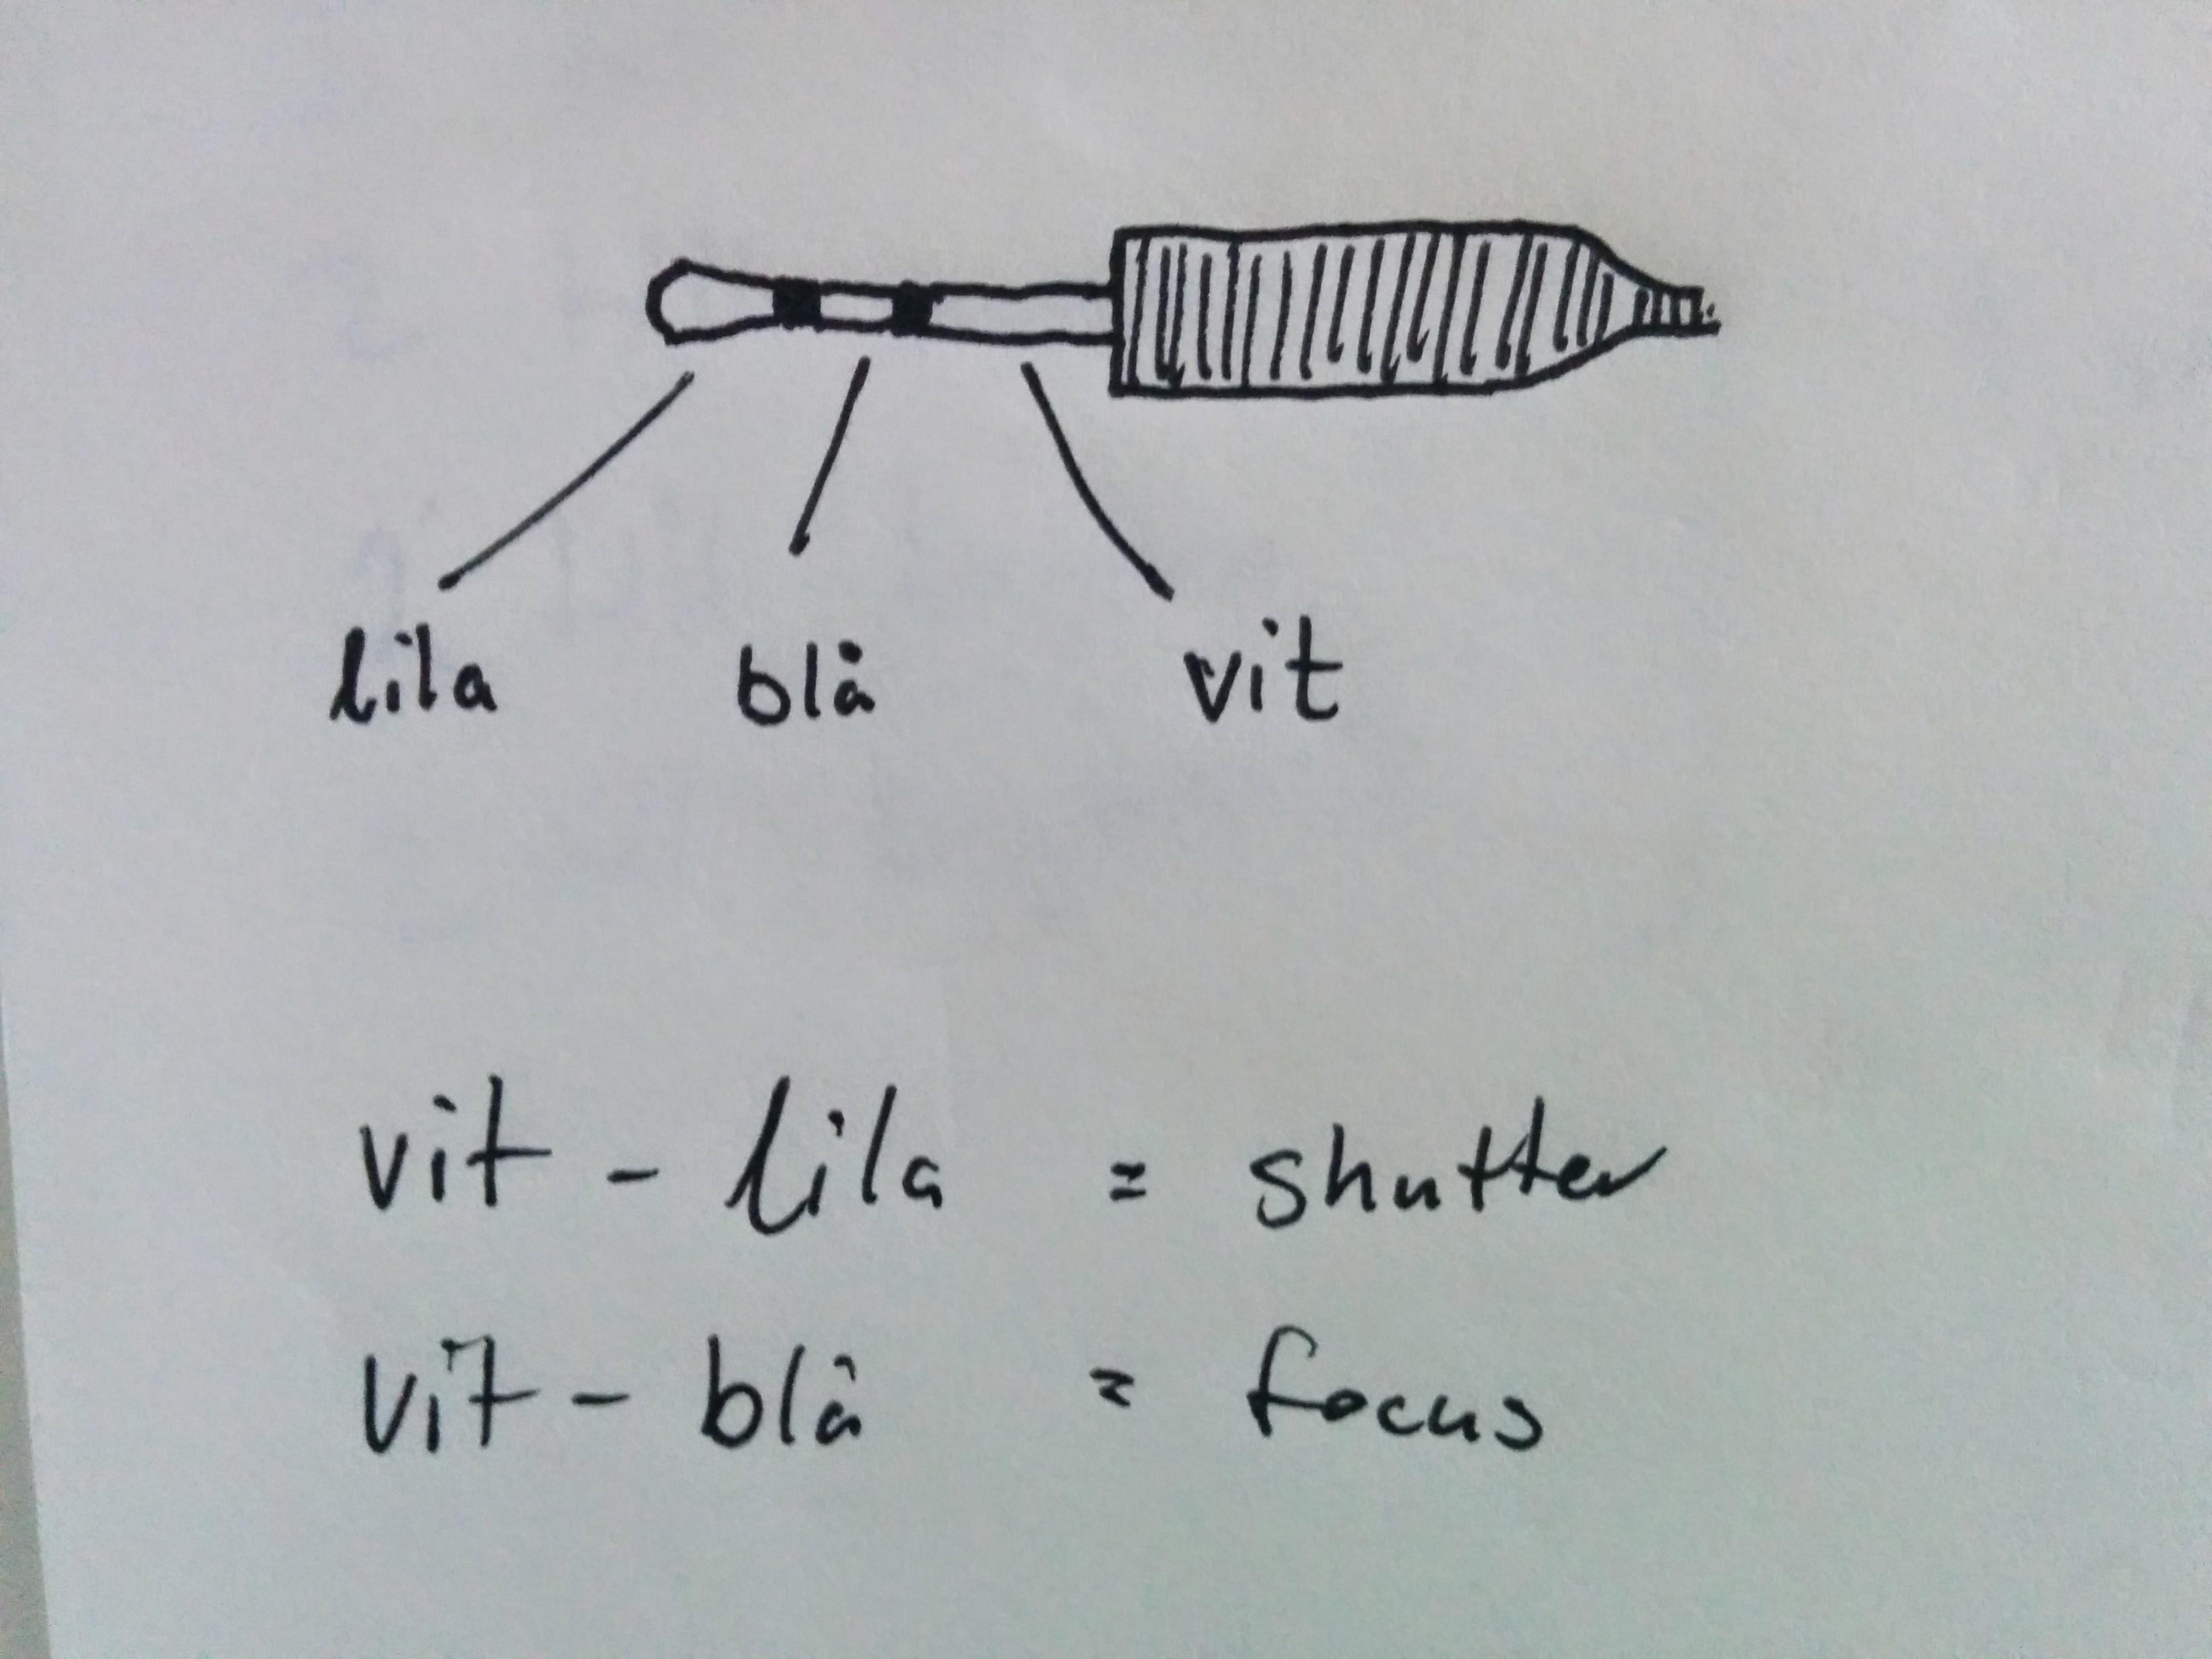 lila blå vit
vit - lila = shutter
vit - blå = focus